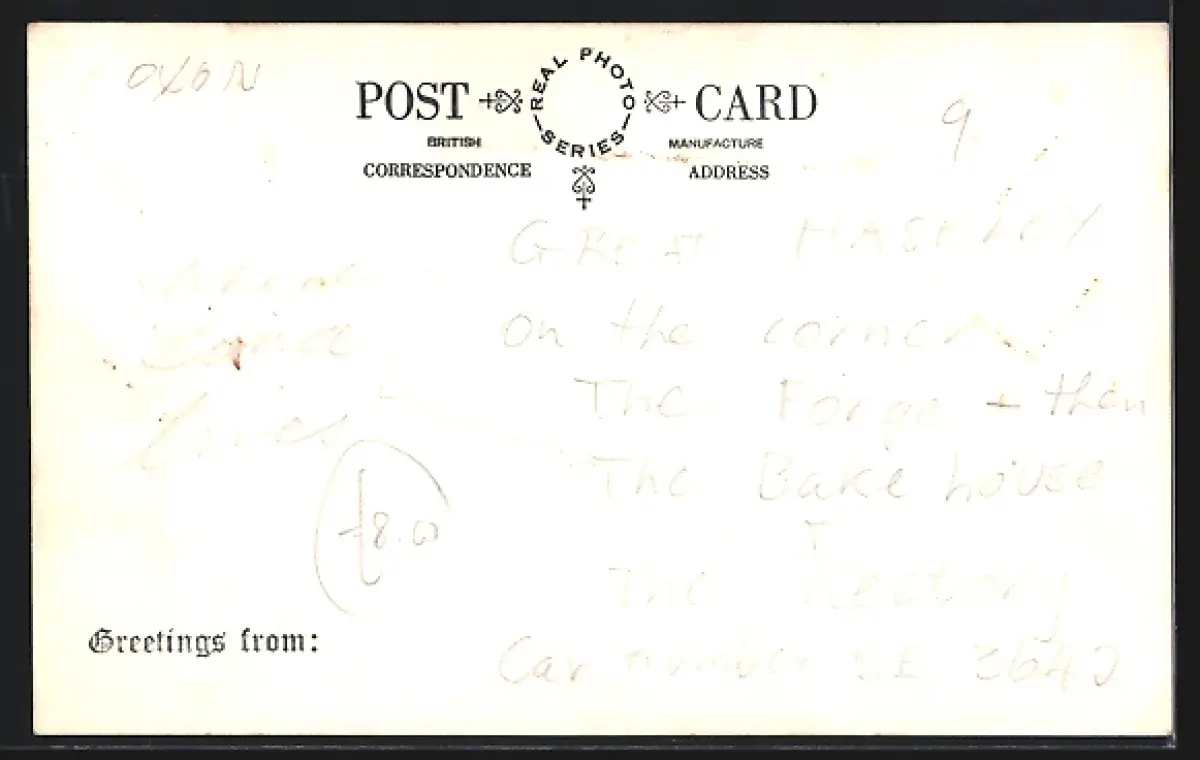 OXON
POST REAL PHOTO SERIES CARD
9
BRITISH MANUFACTURE
CORRESPONDENCE ADDRESS
GREAT HASELEY
where
Lives
On the corner
The Forge + then
The Bake house
+
The Rectory
£8.00
Greetings from:
Car number 3642